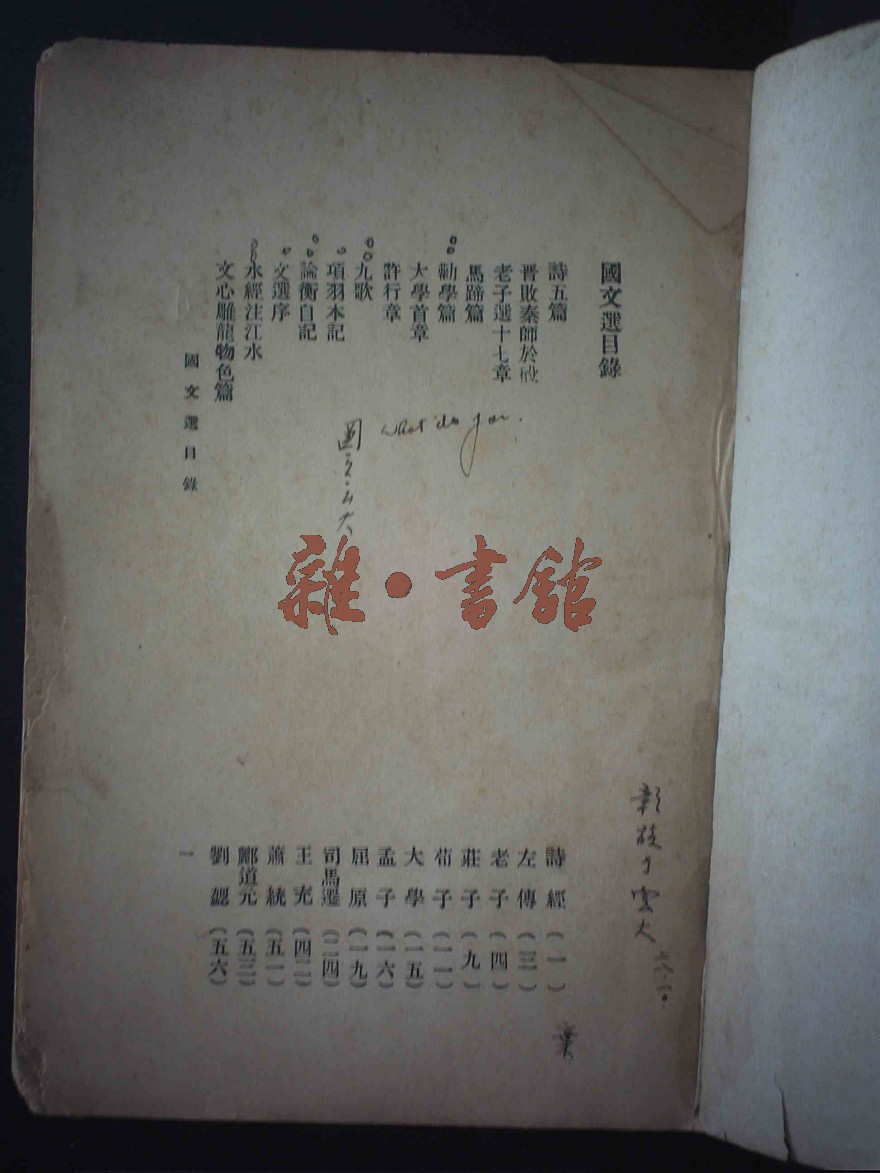 國文選目錄
詩五篇 詩經 (一)
晉敗秦師於殽 左傳 (三)
老子選十七章 老子 (四)
馬蹄篇 莊子 (九)
勸學篇 荀子 (一一)
大學首章 大學 (一五)
許行章 孟子 (一六)
九歌 屈原 (一九)
項羽本記 司馬遷 (二四)
論衡自記 王充 (四二)
文選序 蕭統 (五一)
水經注江水 酈道元 (五三)
文心雕龍物色篇 劉勰 (五六)
國文選目錄
一
What do you.
于雲大
雜·書館